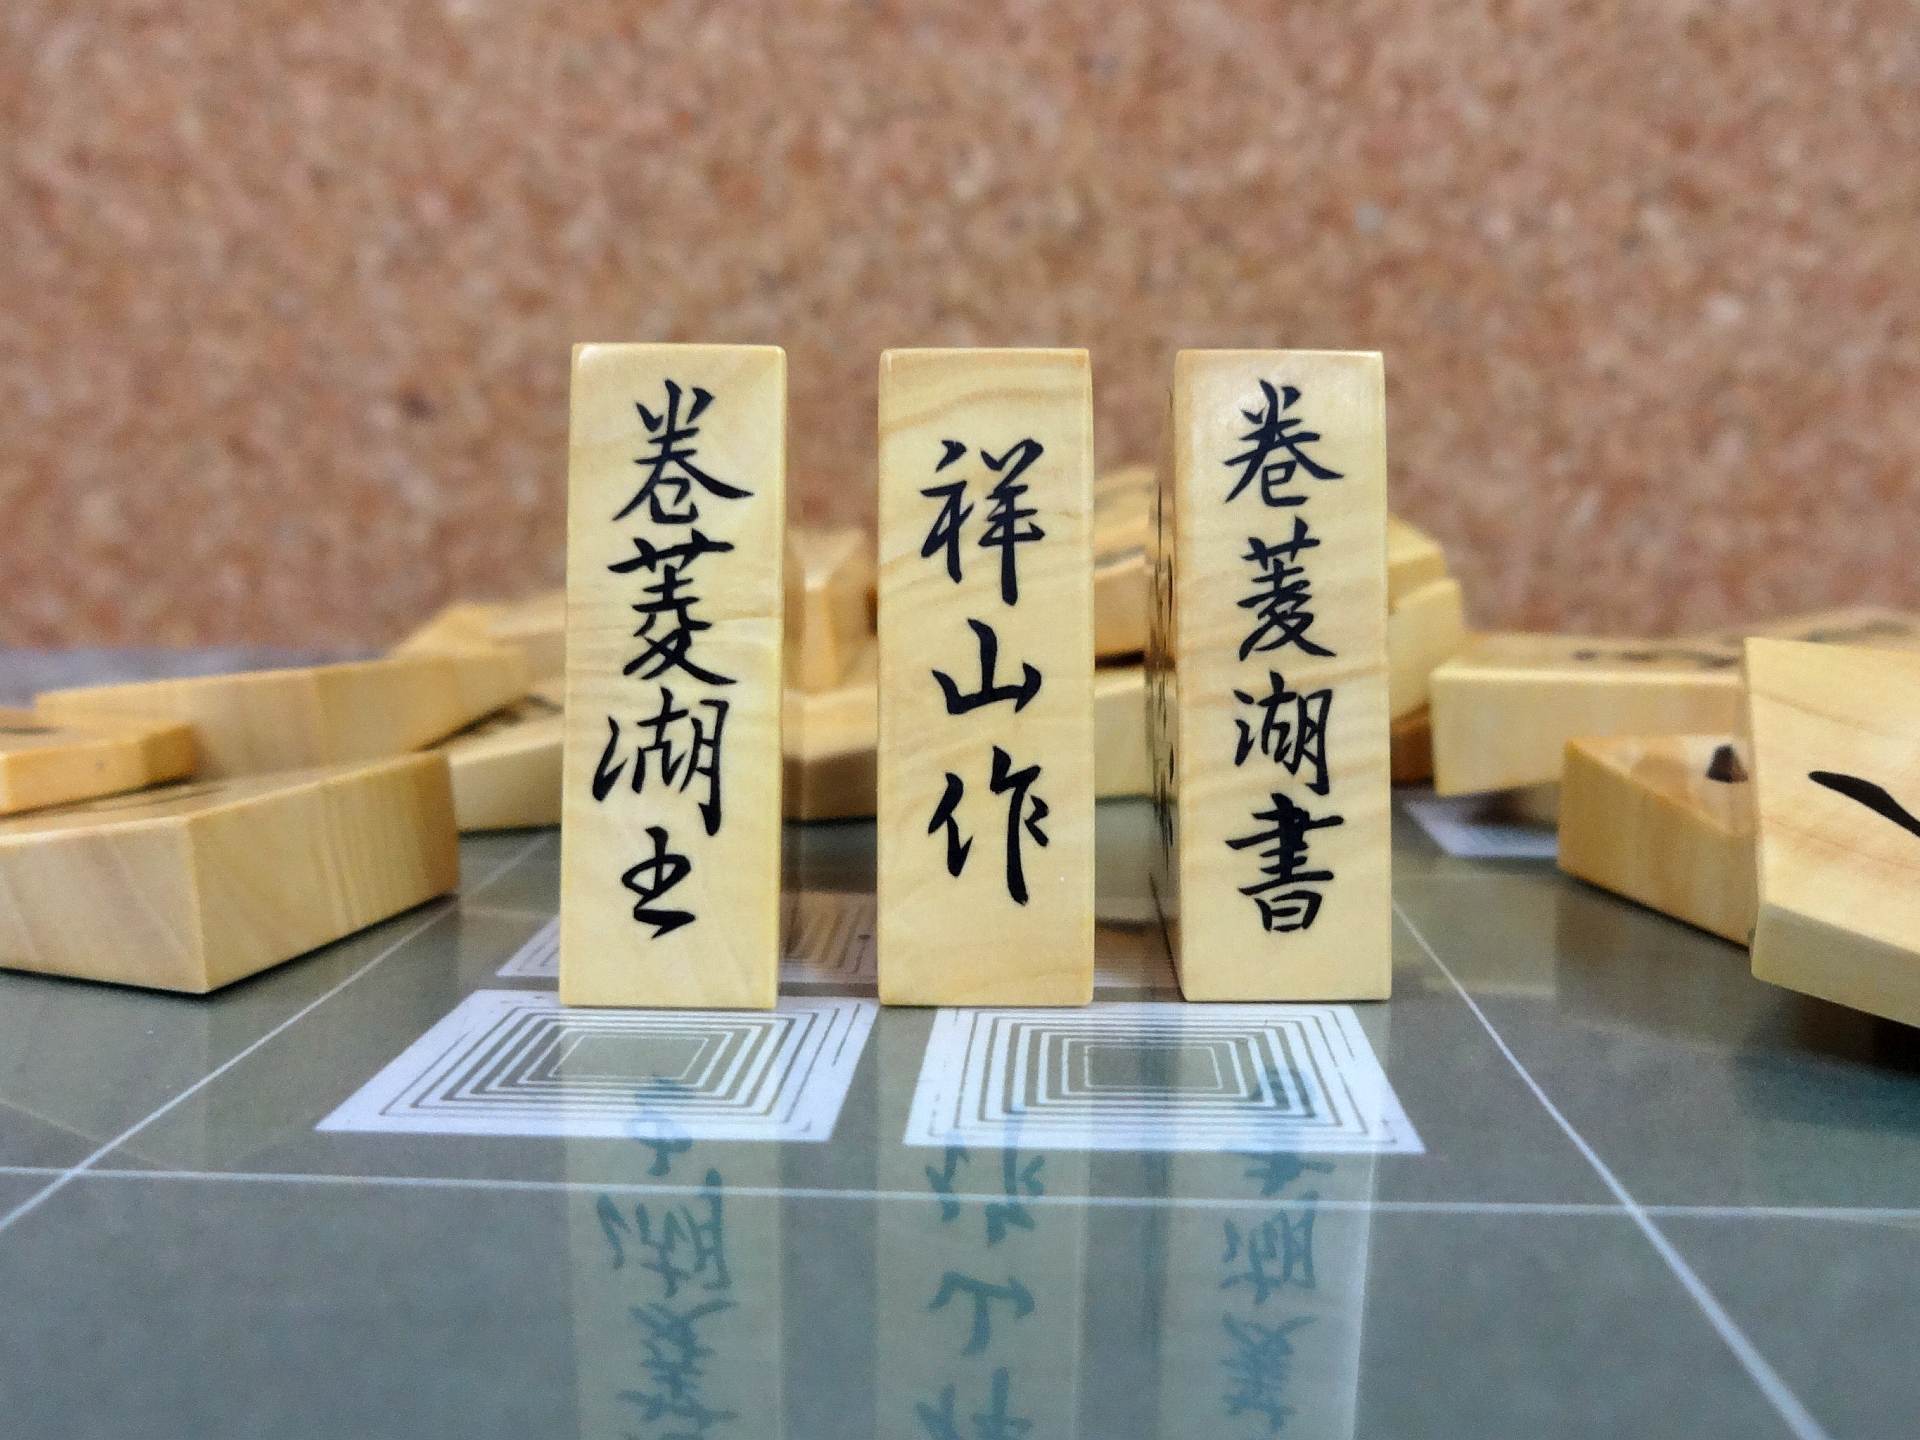 巻菱湖書
祥山作
巻菱湖書